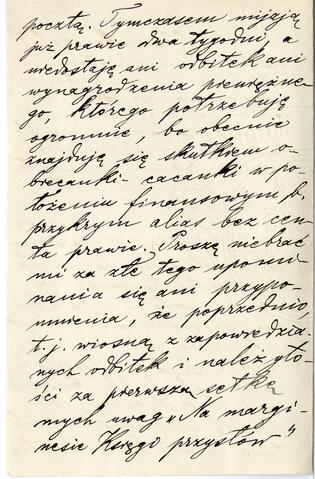 pocztą. Tymczasem mijają
już prawie dwa tygodni, a
niedostają ani odbitek ani
wynagrodzenia pieniężne-
go, którego potrzebuję
ogromnie, bo obecnie
znajduję się skutkiem o-
biecanki-cacanki w po-
łożeniu finansowym b.
przykrym alias bez cen-
ta prawie. Proszę niebrać
mi za złe tego upomi-
nania się ani przypo-
mnienia, że poprzednio,
t. j. wiosną z zapowiedzia-
nych odbitek i należyto-
ści za pierwszą setkę
mych uwag „Na margi-
nesie Księgi przysłów"